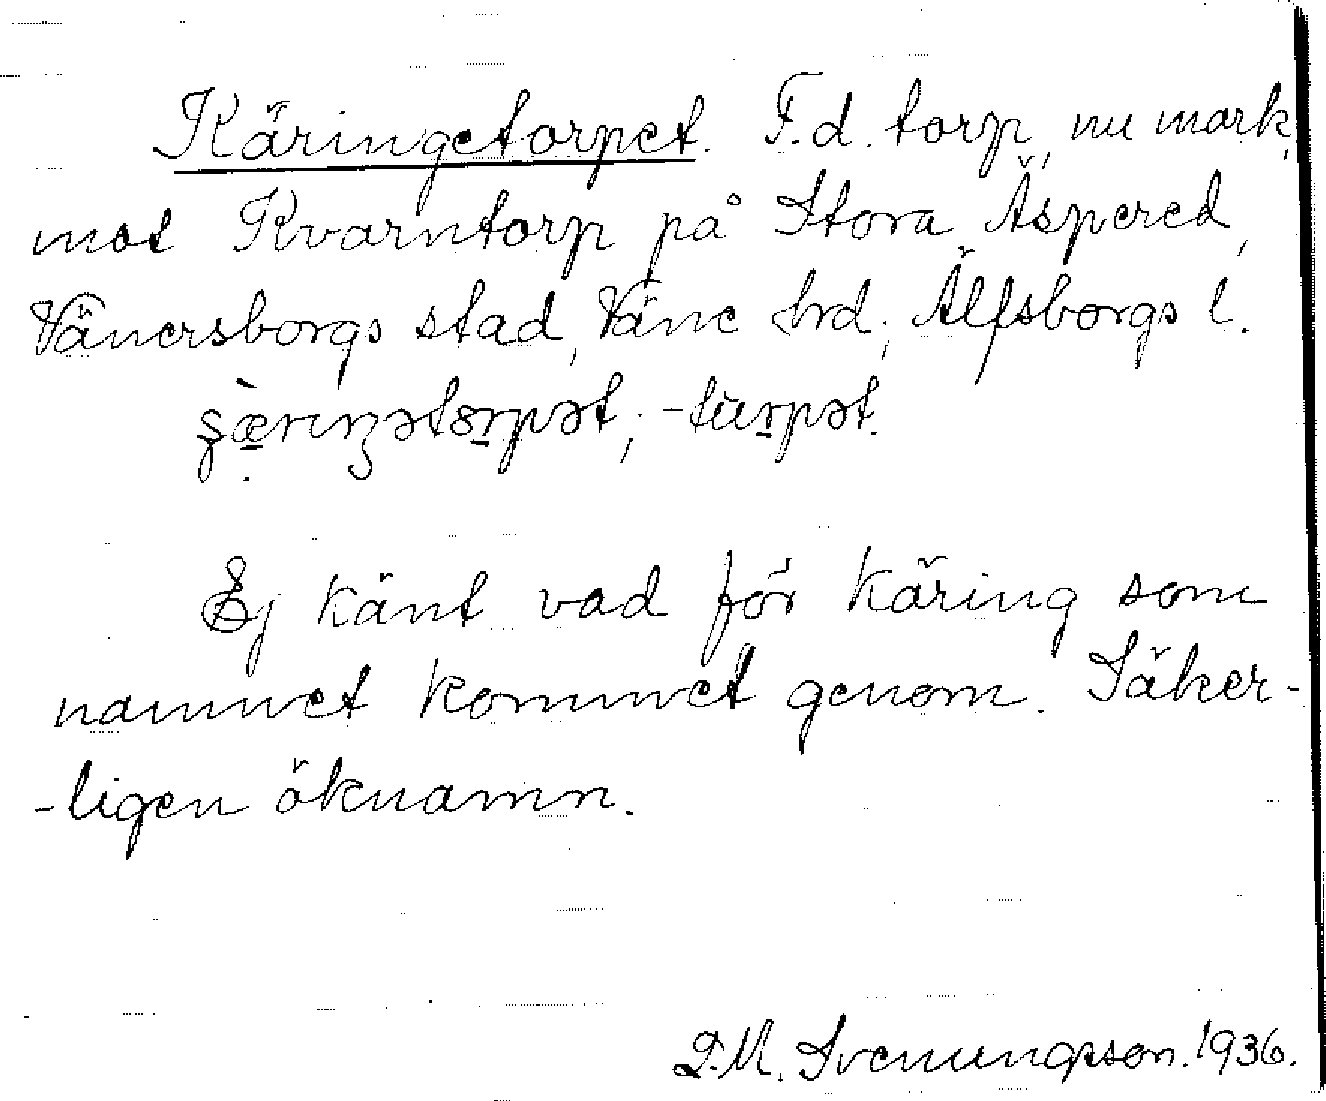 Käringetorpet. F.d. torp, nu mark,
mot Kvarntorp på Stora Äspered,
Vänersborgs stad, Väne hrd, Älfsborgs l.
Ej känt vad för käring som
namnet kommet genom. Säker-
-ligen öknamn.
D.M. Svenungsson. 1936.